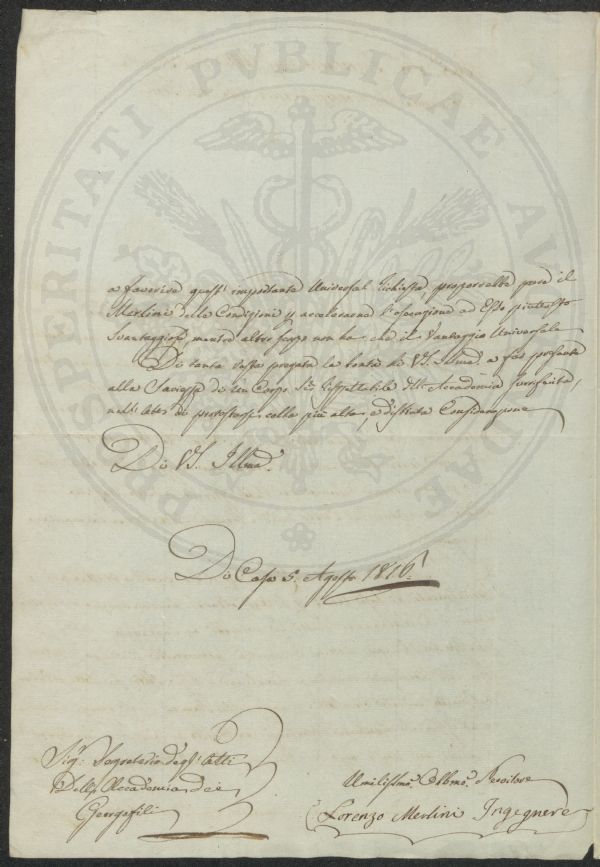 PROSPERITATI PVBLICAE AVGENDAE
a favorire quest' importante Universal richiesta, proporrebbe però il
Merlini delle Condizioni p accelerarne l'esecuzione ad Esso piuttosto
Svantaggiose, mentre altro scopo non ha che il Vantaggio Universale
Di tanto resta pregata la bontà di VS. Illma a far presente
alla Saviezza di un Corpo sì rispettabile
nell'atto di protestarsi colla più alta, e distinta Considerazione
Di VS. Illma
Di Casa 5. Agosto 1816.
Sigr: Segretario degl'Atti
Dell'Accademia dei
Georgofili
Umilissimo Obbmo Servitore
Lorenzo Merlini Ingegnere